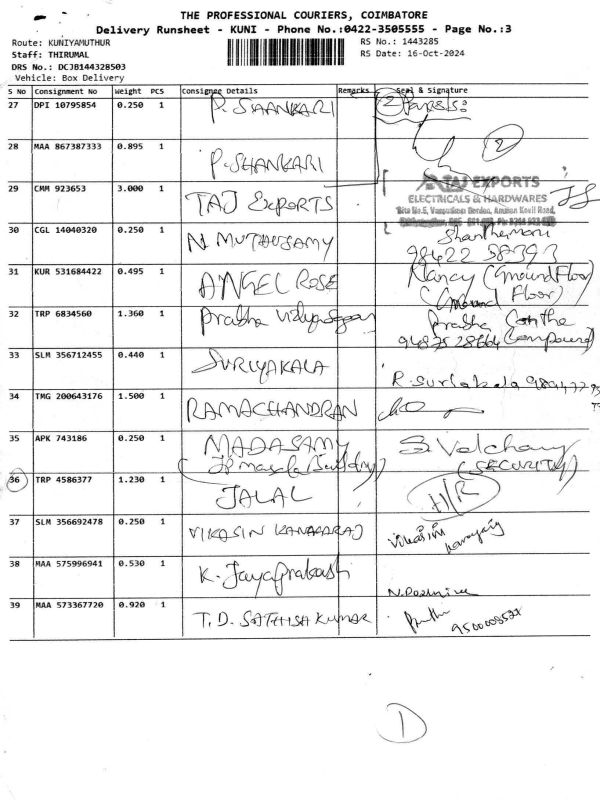 THE PROFESSIONAL COURIERS, COIMBATORE
Delivery Runsheet - KUNI - Phone No.:0422-3505555 - Page No.:3
Route: KUNIYAMUTHUR RS No.: 1443285
Staff: THIRUMAL RS Date: 16-Oct-2024
DRS No.: DCJB144328503
Vehicle: Box Delivery
S No Consignment No Weight PCS Consignee Details Remarks Seal & Signature
27 DPI 10795854 0.250 1 P. SHANKARI 2
28 MAA 867387333 0.895 1 P. SHANKARI 2
29 CMM 923653 3.000 1 TAJ EXPORTS TAJ EXPORTS
ELECTRICALS & HARDWARES
30 CGL 14040320 0.250 1 N. MUTHUSAMY
98422 38393
31 KUR 531684422 0.495 1 ANGEL ROSE Nancy (Ground Floor)
(Ground Floor)
32 TRP 6834560 1.360 1 Prabha
Prabha
33 SLM 356712455 0.440 1 SURIYAKALA
34 TMG 200643176 1.500 1 RAMACHANDRAN
35 APK 743186 0.250 1 MADASAMY
(SECURITY)
36 TRP 4586377 1.230 1 JALAL H/R
37 SLM 356692478 0.250 1 VIKASIN KANAGARAJ
38 MAA 575996941 0.530 1 K. Jayaprakash
39 MAA 573367720 0.920 1 T.D. SATHISH KUMAR
1